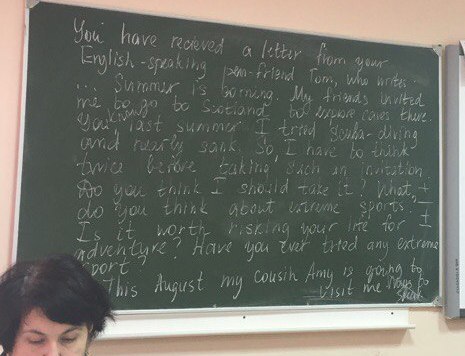 You have recieved a letter from your
English-speaking pen-friend Tom, who writes
... Summer is borning. My friends invited
me to go to Scotland to explore caves there.
You know, last summer I tried scuba-diving
and nearly sank. So, I have to think
twice before taking such an invitation.
Do you think I should take it? What +
do you think about extreme sports? -
Is it worth risking your life for ±
adventure? Have you ever tried any extreme
sport?
This August my cousin Amy is going to
visit me